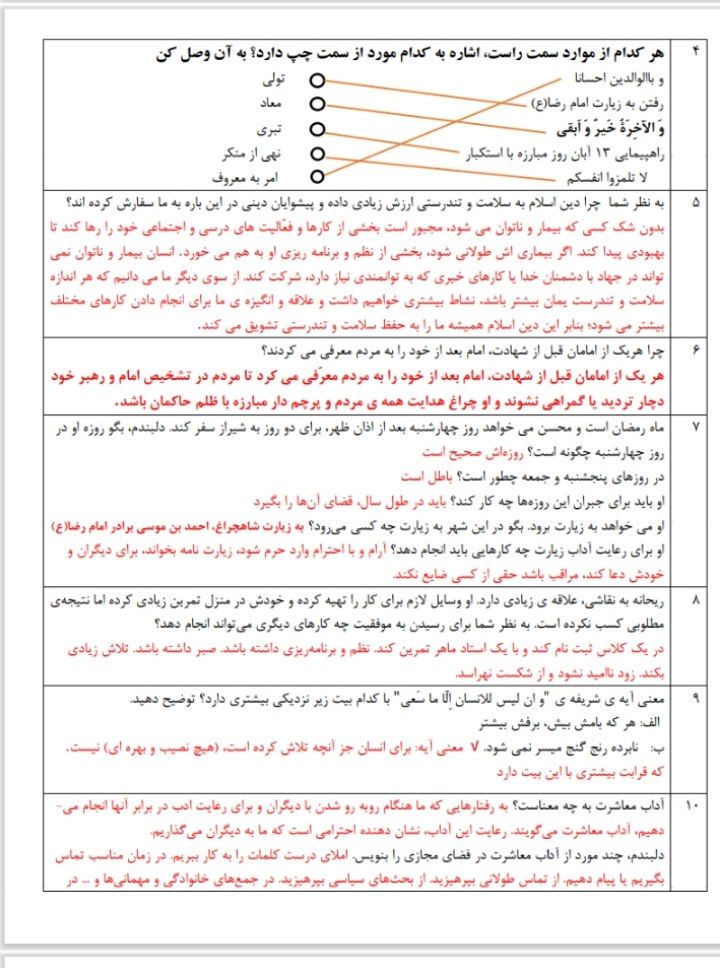 ۴ هر کدام از موارد سمت راست، اشاره به کدام مورد از سمت چپ دارد؟ به آن وصل کن
و باالوالدین احسانا تولی
رفتن به زیارت امام رضا(ع) معاد
وَ الآخِرَةُ خَیرٌ وَ اَبقی تبری
راهپیمایی ۱۳ آبان روز مبارزه با استکبار نهی از منکر
لا تلمزوا انفسکم امر به معروف
۵ به نظر شما چرا دین اسلام به سلامت و تندرستی ارزش زیادی داده و پیشوایان دینی در این باره به ما سفارش کرده اند؟
بدون شک کسی که بیمار و ناتوان می شود، مجبور است بخشی از کارها و فعّالیت های درسی و اجتماعی خود را رها کند تا
بهبودی پیدا کند. اگر بیماری اش طولانی شود، بخشی از نظم و برنامه ریزی او به هم می خورد. انسان بیمار و ناتوان نمی
تواند در جهاد با دشمنان خدا یا کارهای خیری که به توانمندی نیاز دارد، شرکت کند. از سوی دیگر ما می دانیم که هر اندازه
سلامت و تندرست یمان بیشتر باشد، نشاط بیشتری خواهیم داشت و علاقه و انگیزه ی ما برای انجام دادن کارهای مختلف
بیشتر می شود؛ بنابر این دین اسلام همیشه ما را به حفظ سلامت و تندرستی تشویق می کند.
۶ چرا هریک از امامان قبل از شهادت، امام بعد از خود را به مردم معرفی می کردند؟
هر یک از امامان قبل از شهادت، امام بعد از خود را به مردم معرّفی می کرد تا مردم در تشخیص امام و رهبر خود
دچار تردید یا گمراهی نشوند و او چراغ هدایت همه ی مردم و پرچم دار مبارزه با ظلم حاکمان باشد.
۷ ماه رمضان است و محسن می خواهد روز چهارشنبه بعد از اذان ظهر، برای دو روز به شیراز سفر کند. دلبندم، بگو روزه او در
روز چهارشنبه چگونه است؟ روزه‌اش صحیح است
در روزهای پنجشنبه و جمعه چطور است؟ باطل است
او باید برای جبران این روزه‌ها چه کار کند؟ باید در طول سال، قضای آن‌ها را بگیرد
او می خواهد به زیارت برود. بگو در این شهر به زیارت چه کسی می‌رود؟ به زیارت شاهچراغ، احمد بن موسی برادر امام رضا(ع)
او برای رعایت آداب زیارت چه کارهایی باید انجام دهد؟ آرام و با احترام وارد حرم شود، زیارت نامه بخواند، برای دیگران و
خودش دعا کند، مراقب باشد حقی از کسی ضایع نکند.
۸ ریحانه به نقاشی، علاقه ی زیادی دارد. او وسایل لازم برای کار را تهیه کرده و خودش در منزل تمرین زیادی کرده اما نتیجه‌ی
مطلوبی کسب نکرده است. به نظر شما برای رسیدن به موفقیت چه کارهای دیگری می‌تواند انجام دهد؟
در یک کلاس ثبت نام کند و با یک استاد ماهر تمرین کند. نظم و برنامه‌ریزی داشته باشد. صبر داشته باشد. تلاش زیادی
بکند. زود ناامید نشود و از شکست نهراسد.
۹ معنی آیه ی شریفه ی "و ان لیس للانسان إلّا ما سَعی" با کدام بیت زیر نزدیکی بیشتری دارد؟ توضیح دهید.
الف: هر که بامش بیش، برفش بیشتر
ب: نابرده رنج گنج میسر نمی شود. √ معنی آیه: برای انسان جز آنچه تلاش کرده است، (هیچ نصیب و بهره ای) نیست.
که قرابت بیشتری با این بیت دارد
۱۰ آداب معاشرت به چه معناست؟ به رفتارهایی که ما هنگام روبه رو شدن با دیگران و برای رعایت ادب در برابر آنها انجام می-
دهیم، آداب معاشرت می‌گویند. رعایت این آداب، نشان دهنده احترامی است که ما به دیگران می‌گذاریم.
دلبندم، چند مورد از آداب معاشرت در فضای مجازی را بنویس. املای درست کلمات را به کار ببریم. در زمان مناسب تماس
بگیریم یا پیام دهیم. از تماس طولانی بپرهیزید. از بحث‌های سیاسی بپرهیزید. در جمع‌های خانوادگی و مهمانی‌ها و ... در